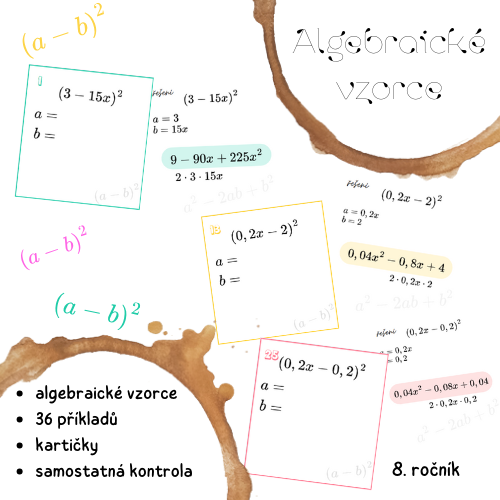 (a − b)²
Algebraické
vzorce
1
(3 − 15x)²
a =
b =
(a − b)²
řešení
(3 − 15x)²
a = 3
b = 15x
9 − 90x + 225x²
2 · 3 · 15x
a² − 2ab + b²
(a − b)²
(a − b)²
13
(0, 2x − 2)²
a =
b =
(a − b)²
řešení
(0, 2x − 2)²
a = 0, 2x
b = 2
0, 04x² − 0, 8x + 4
2 · 0, 2x · 2
a² − 2ab + b²
25
(0, 2x − 0, 2)²
a =
b =
(a − b)²
řešení
(0, 2x − 0, 2)²
a = 0, 2x
= 0, 2
0, 04x² − 0, 08x + 0, 04
2 · 0, 2x · 0, 2
a² − 2ab + b²
• algebraické vzorce
• 36 příkladů
• kartičky
• samostatná kontrola
8. ročník